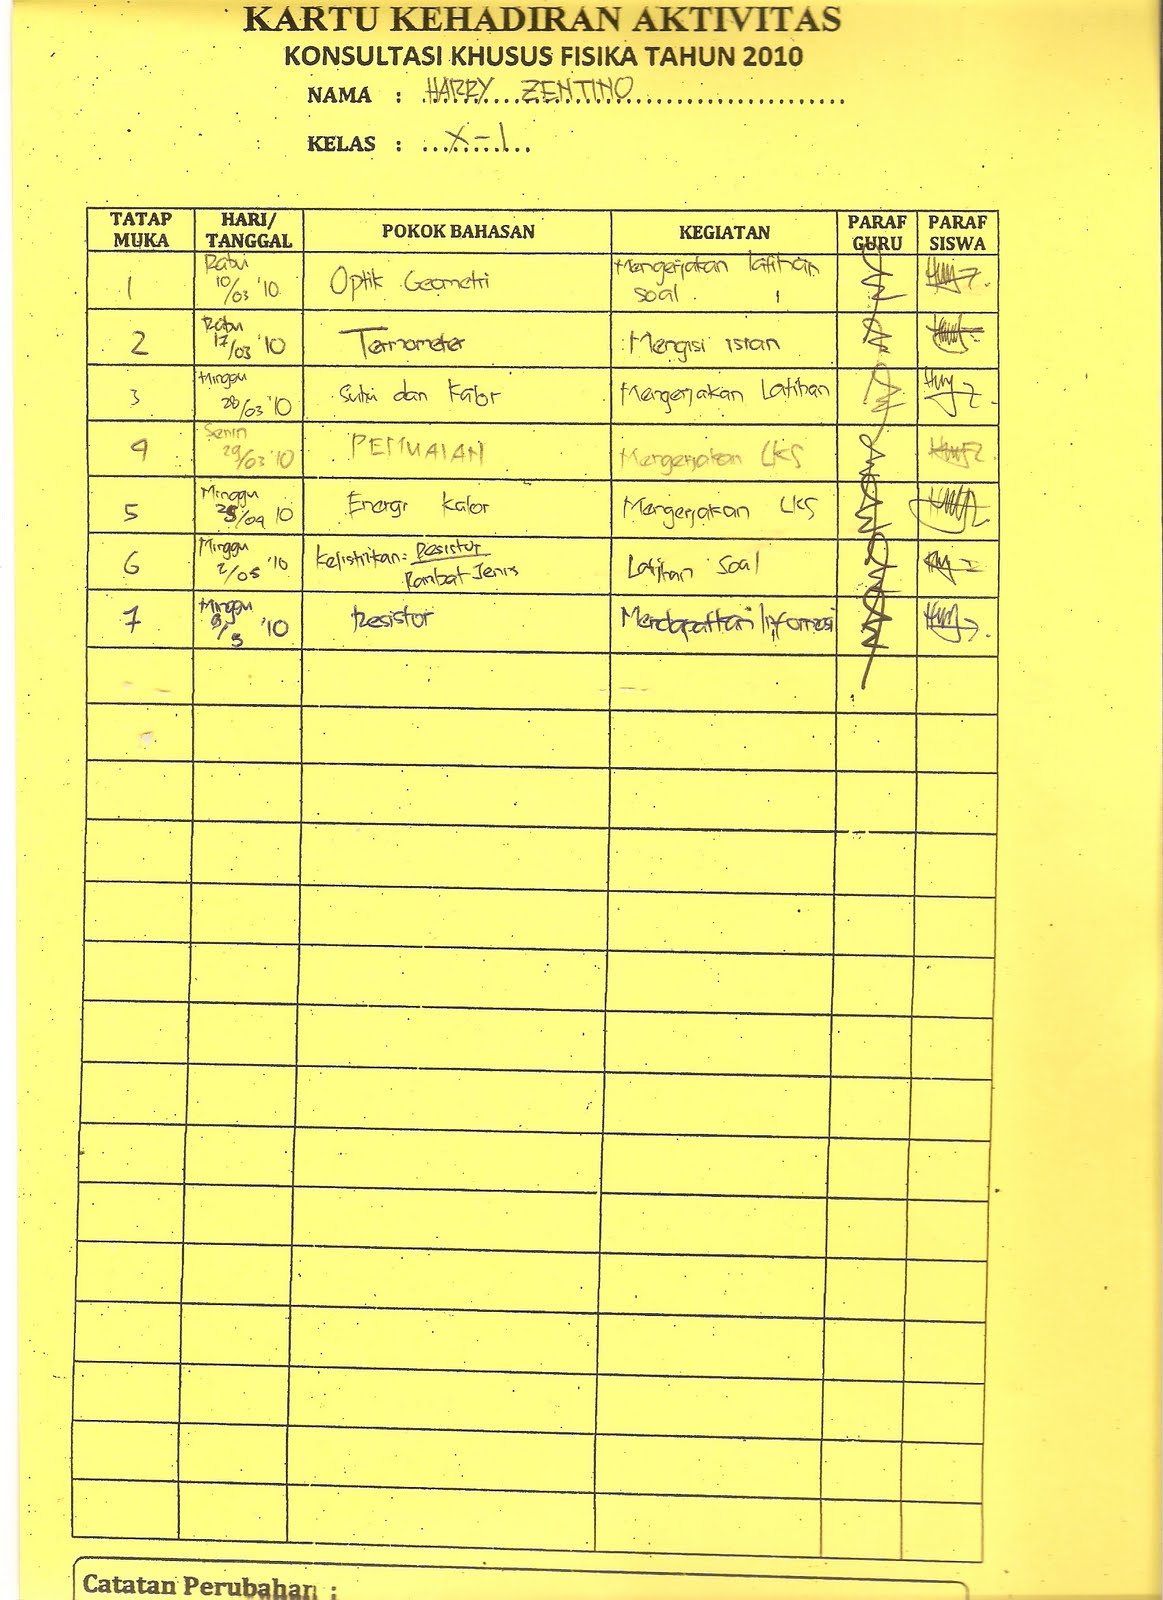 KARTU KEHADIRAN AKTIVITAS
KONSULTASI KHUSUS FISIKA TAHUN 2010
NAMA : HARRY ZENTINO
KELAS : X-1
TATAP MUKA HARI/ TANGGAL POKOK BAHASAN KEGIATAN PARAF GURU PARAF SISWA
1 Rabu 10/03 '10 Optik Geometri Mengerjakan latihan soal
2 Rabu 17/03 '10 Termometer Mengisi isian
3 Minggu 28/03 '10 Suhu dan Kalor Mengerjakan Latihan
4 Senin 29/03 '10 PEMUAIAN Mengerjakan LKS
5 Minggu 25/04 10 Energi Kalor Mengerjakan LKS
6 Minggu 2/05 '10 Kelistrikan: Resistor Hambat Jenis Latihan Soal
7 Minggu 9/5 '10 Resistor Mendapatkan Informasi
Catatan Perubahan :